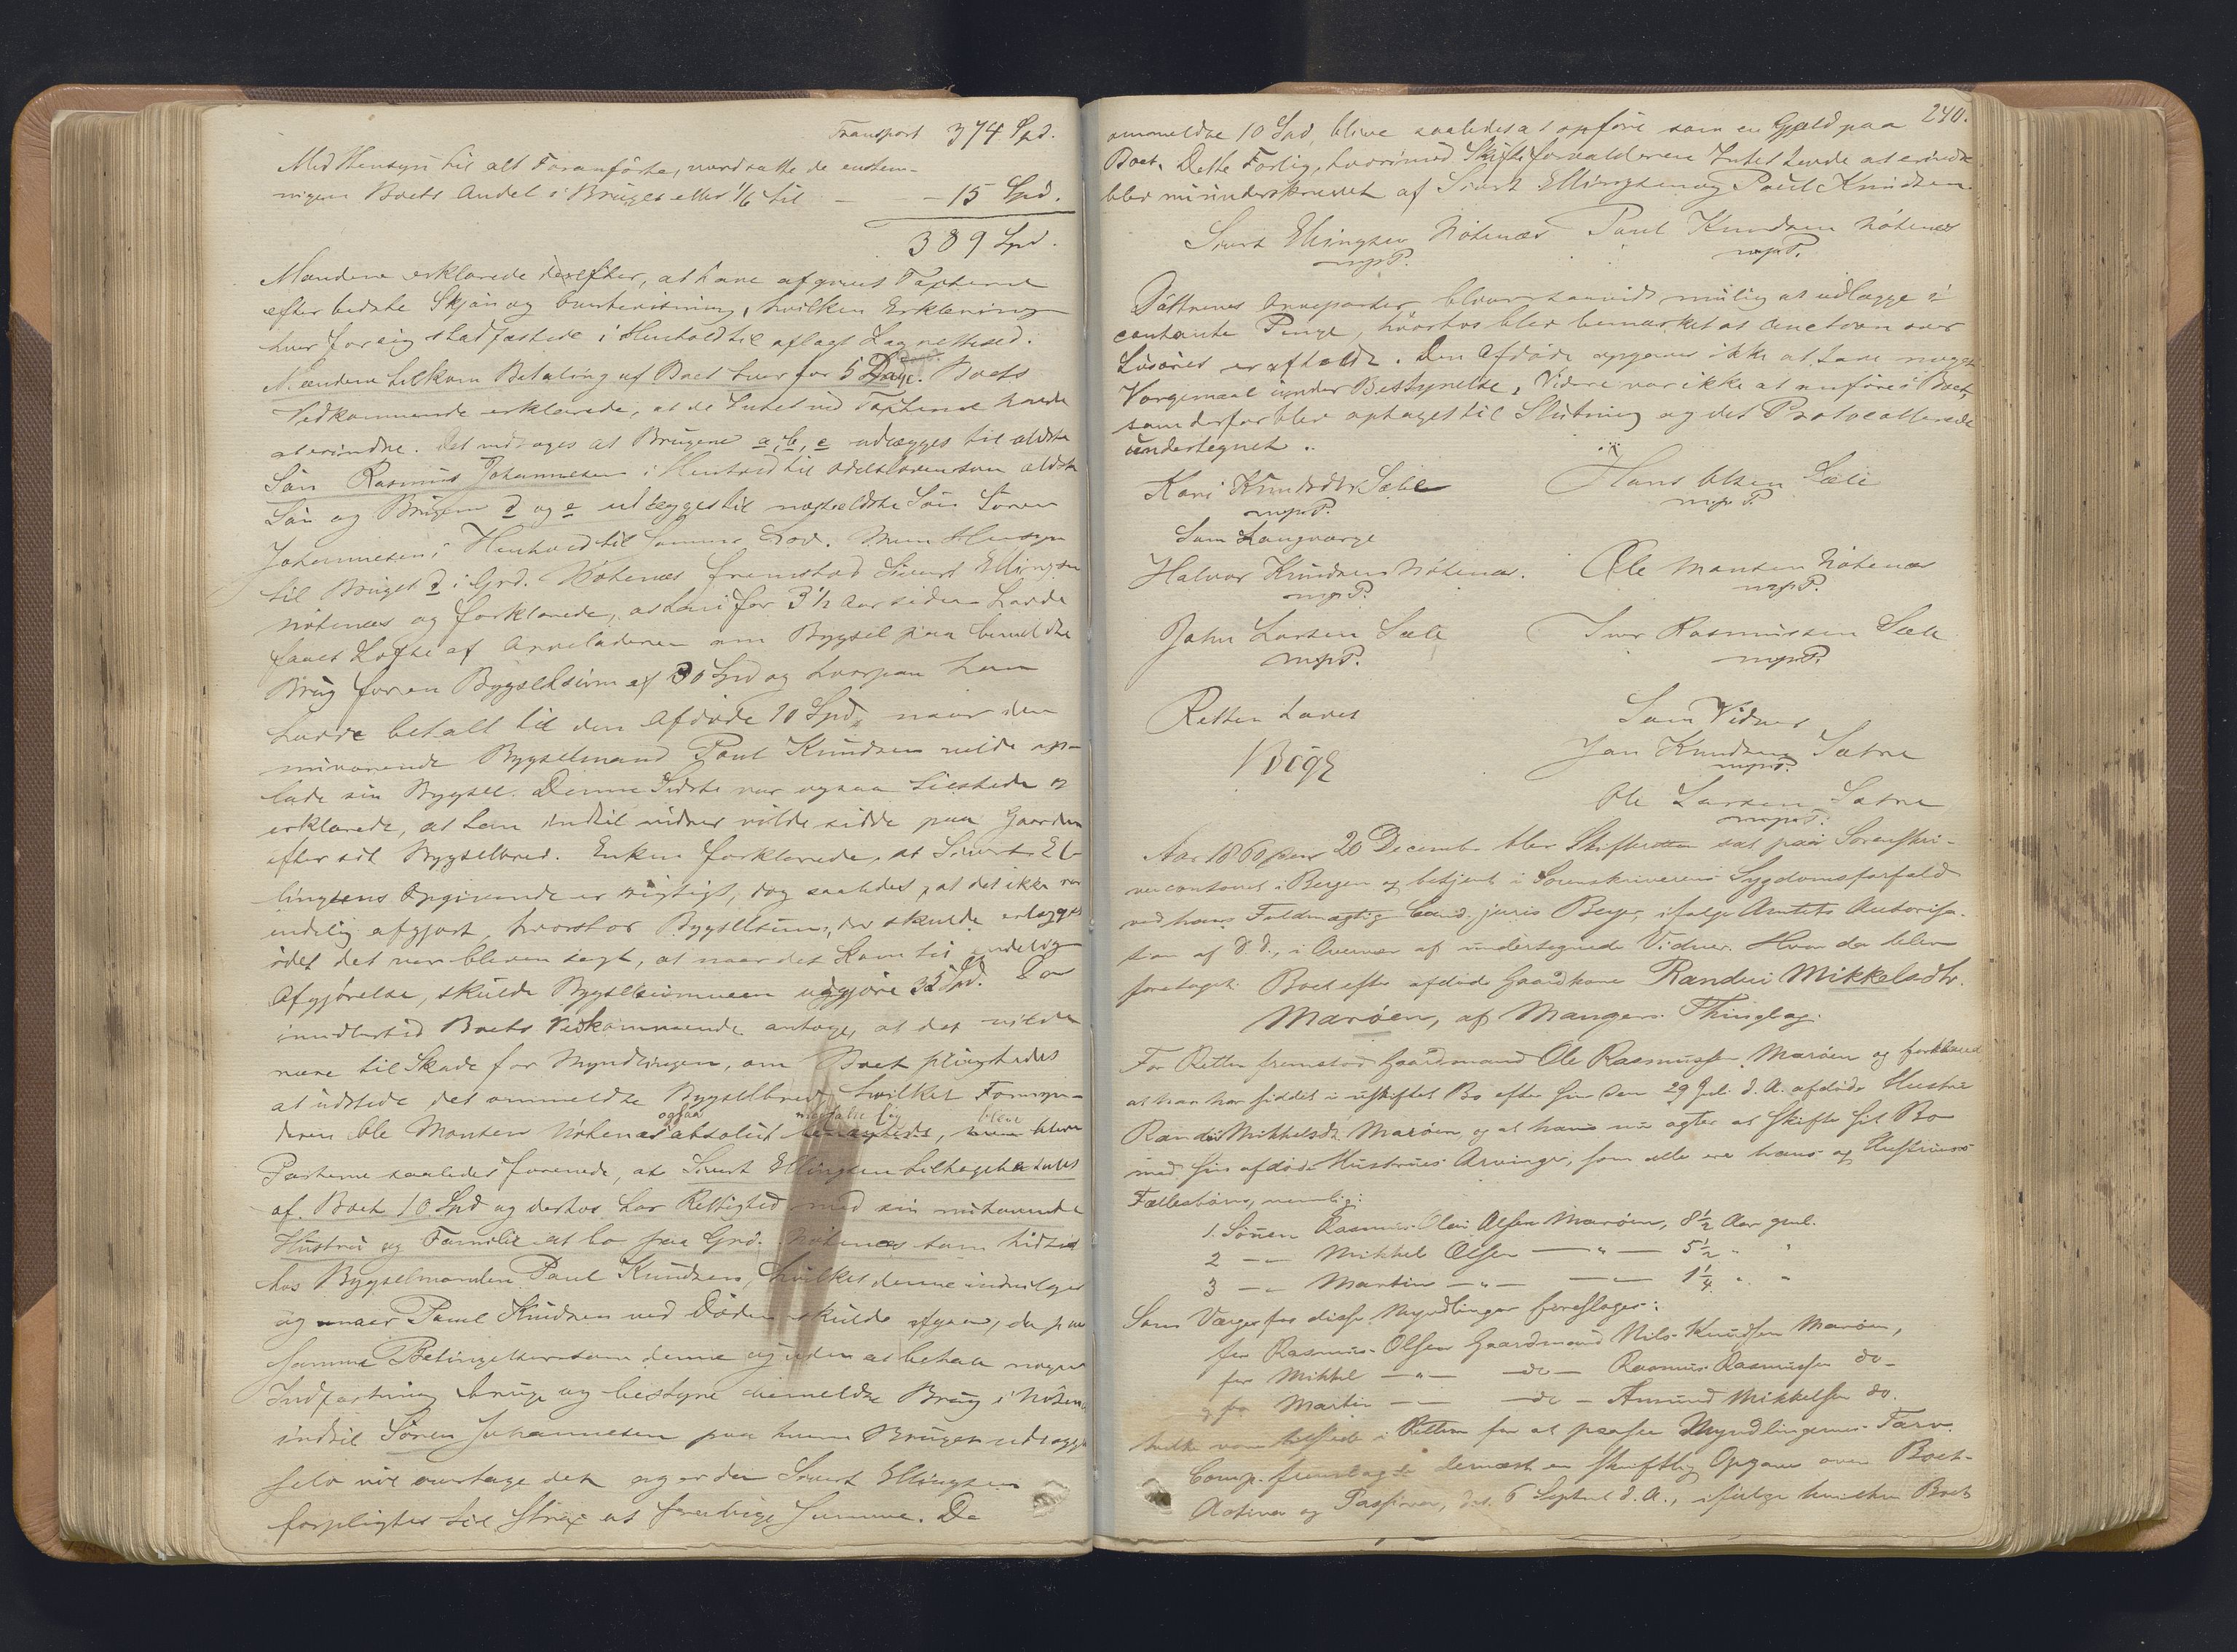 Transport 374 Spd.
Med Hensyn til alt Foranførte, værdsatte de enstem-
migen Boets Andel i Bruget eller 1/6 til - - 15 Spd.
389 Spd.
Mændene erklærede derefter, at have afgivet Taxterne
efter bedste Skjøn og Overbeviisning, hvilken Erklæring
hver for sig stadfæstede i Henhold til aflagt Lagrettesed.
Mændene tilkom Betaling af Boet hver for 5 Dage. Boets
Vedkommende erklærede, at de Intet ved Taxterne havde
at erindre. Det vedtoges at Brugene a, b, c udlægges til ældste
Søn Rasmus Johannesen i Henhold til Odelsloven som ældste
Søn og Brugene d og e udlægges til næstældste Søn Søren
Johannesen i Henhold til samme Lov. Med Hensyn
til Bruget d i Grd. Nøtenæs fremstod Sivert Ellingsen
Nøtenæs og forklarede, at han for 3 1/2 Aar siden havde
faaet Løfte af Arveladeren om Bygsel paa bemeldte
Brug for en Bygselsum af 30 Spd og hvorpaa han
havde betalt til den Afdøde 10 Spd, naar den
nuværende Bygselmand Paul Knudsen vilde op-
lade sin Bygsel. Denne Sidste var ogsaa tilstede og
erklærede, at han indtil videre vilde sidde paa Gaarden
efter sit Bygselbrev. Enken forklarede, at Sivert El-
lingsens Opgivende er rigtigt, dog saaledes, at det ikke var
endelig afgjort, hvorstor Bygselsum, der skulde erlægges
idet det var bleven sagt, at naar det kom til endelig
Afgjørelse, skulde Bygselsummen udgjøre 35 Spd. Da
imidlertid Boets Vedkommende antoge, at det vilde
være til Skade for Myndlingen, om Boet pligtedes
at udstede det ommeldte Bygselbrev, hvilket Formyn-
deren Ole Monsen Nøtenæs ogsaa absolut modsatte sig, blev
Parterne saaledes forenede, at Sivert Ellingsen tilbagebetales
af Boet 10 Spd og derhos har Rettighed med sin nuhavende
Hustru og Familie at bo paa Grd. Nøtenæs som hidtil
hos Bygselmanden Paul Knudsen, hvilket denne indvilger
og naar Paul Knudsen ved Døden skulde afgaae, da paa
samme Betingelser som denne og uden at betale nogen
Indfæstning bruge og bestyre anmeldte Brug i Nøtenæs
indtil Søren Johannesen paa hvem Bruget udlægges
selv vil overtage det og er den Sivert Ellingsen
forpligtet til strax at fravige samme. De
240.
ommeldte 10 Spd, blive saaledes at opføre som en Gjeld paa
Boet. Dette Forlig, hvorimod Skifteforvalteren Intet havde at erindre
blev nu underskrevet af Sivert Ellingsen og Paul Knudsen.
Sivert Ellingsen Nøtenæs Paul Knudsen Nøtenæs
mpP. mpP.
Døttrenes Arveparter bliver saavidt mulig at udlægge i
contante Penge, hvorhos blev bemærket at Auction over
Løsøret er afholdt. Den Afdøde opgaves ikke at have noget
Værgemaal under Bestyrelse. Videre var ikke at anføre i Boet,
som derfor blev optaget til Slutning og det Protocollerede
undertegnet.
Kari Knudsdtr Sæle Hans Olsen Sæle
mpP. mpP.
Som Laugværge
Halvor Knudsen Nøtenæs. Ole Monsen Nøtenæs
mpP. mpP.
John Larsen Sæle Iver Rasmussen Sæle
mpP. mpP.
Retten hævet Som Vidner
Bøgh Jan Knudsen Sætre
mpP.
Ole Larsen Sætre
mpP.
Aar 1860 den 20 December blev Skifteretten sat paa Sorenskri-
vercontoret i Bergen og betjent i Sorenskriverens Sygdomsforfald
ved hans Fuldmægtig Cand. juris Beyer, ifølge Amtets Autorisa-
tion af d. D., i Overvær af undertegnede Vidner. Hvor da blev
foretaget: Boet efter afdøde Gaardkone Randvi Mikkelsdtr.
Marøen, af Mangers Thinglag.
For Retten fremstod Gaardmand Ole Rasmussen Marøen og forklarede
at han har siddet i uskiftet Bo efter sin den 29 Juli d. A. afdøde Hustru
Randvi Mikkelsdtr Marøen og at han nu agter at skifte sit Bo
med sin afdøde Hustrues Arvinger, som alle ere hans og Hustruens
Fællesbørn, nemlig:
1. Sønen Rasmus Olai Olsen Marøen, 8 1/2 Aar gml.
2 - - Mikkel Olsen - " - 5 1/2 " "
3 - - Martin - " - - - 1 1/4 " "
Som Værger for disse Myndlinger foresloges:
for Rasmus Olsen Gaardmand Nils Knudsen Marøen,
for Mikkel - " - - do - Rasmus Rasmussen do -
og for Martin - - - do - Amund Mikkelsen do.
hvilke vare tilstede i Retten for at paasee Myndlingernes Tarv.
Comp. fremlagde dernæst en skriftlig Opgave over Boets
Activa og Passiva, dat. 6 Septbr d. A., ifølge hvilken Boets